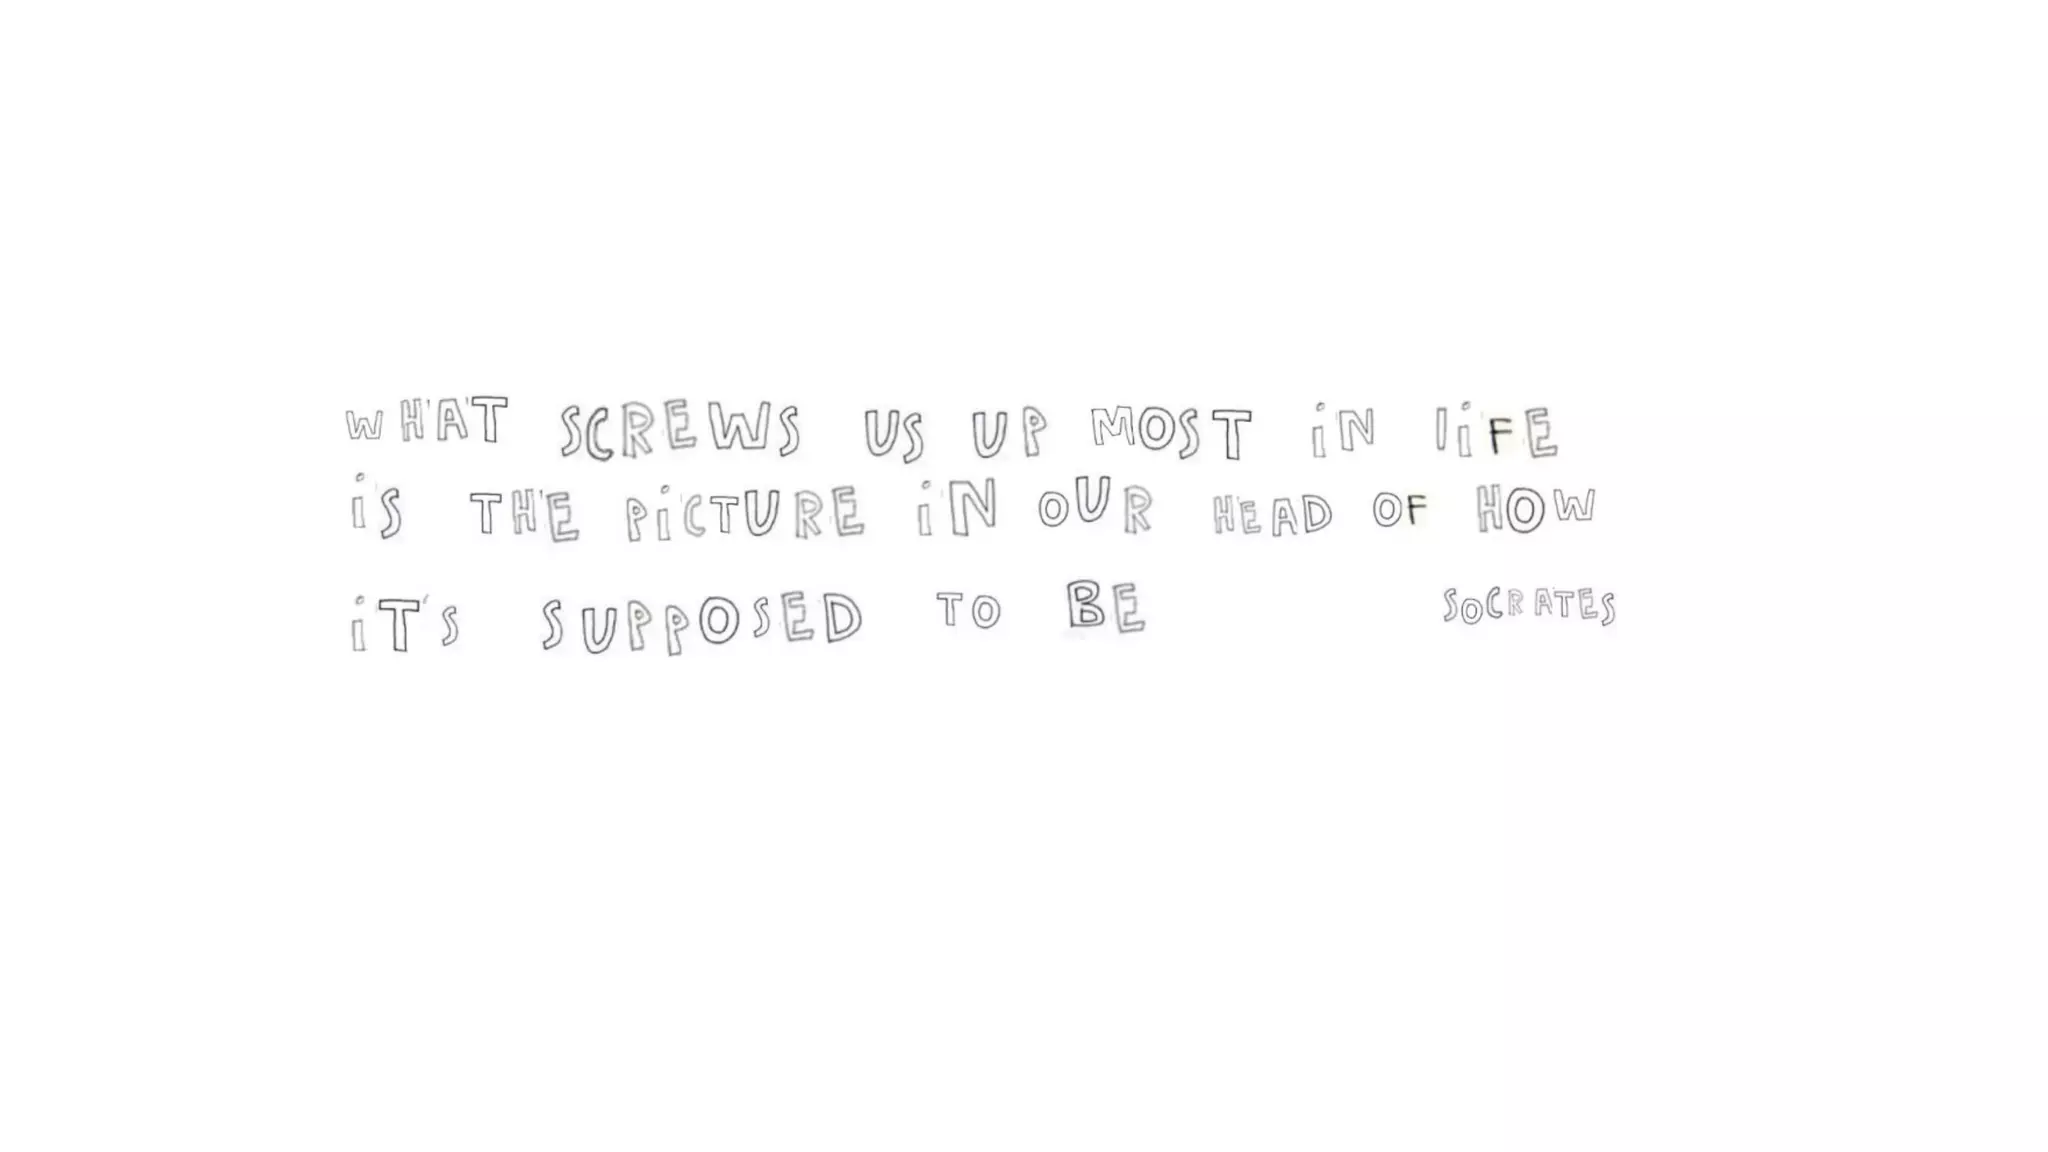 WHAT SCREWS US UP MOST iN liFE
iS THE PiCTURE iN OUR HEAD OF HOW
iT'S SUPPOSED TO BE SOCRATES